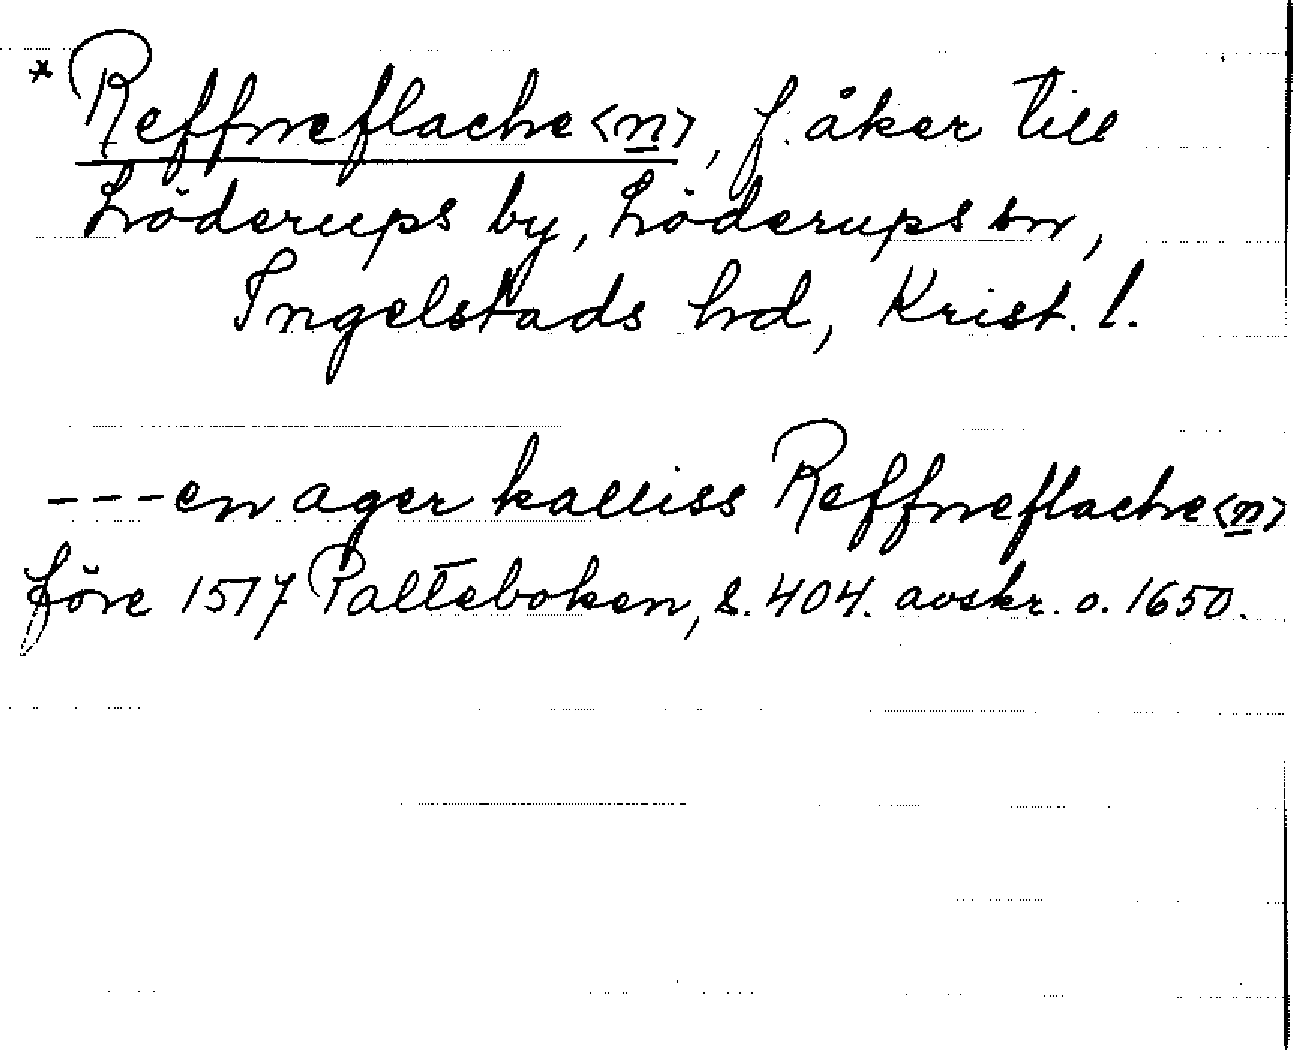 *Reffneflache<n>, f. åker till
Löderups by, Löderups sn,
Ingelstads hd, Krist. l.
---en ager kalliss Reffneflache<n>
före 1517 Palteboken, s. 404. avskr. o. 1650.